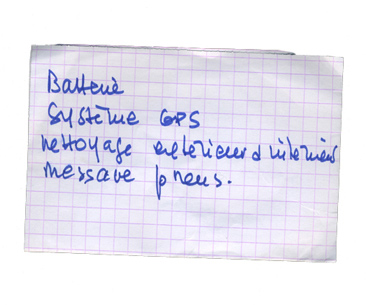 Batterie
Système GPS
nettoyage exterieur & interieur
message pneus.